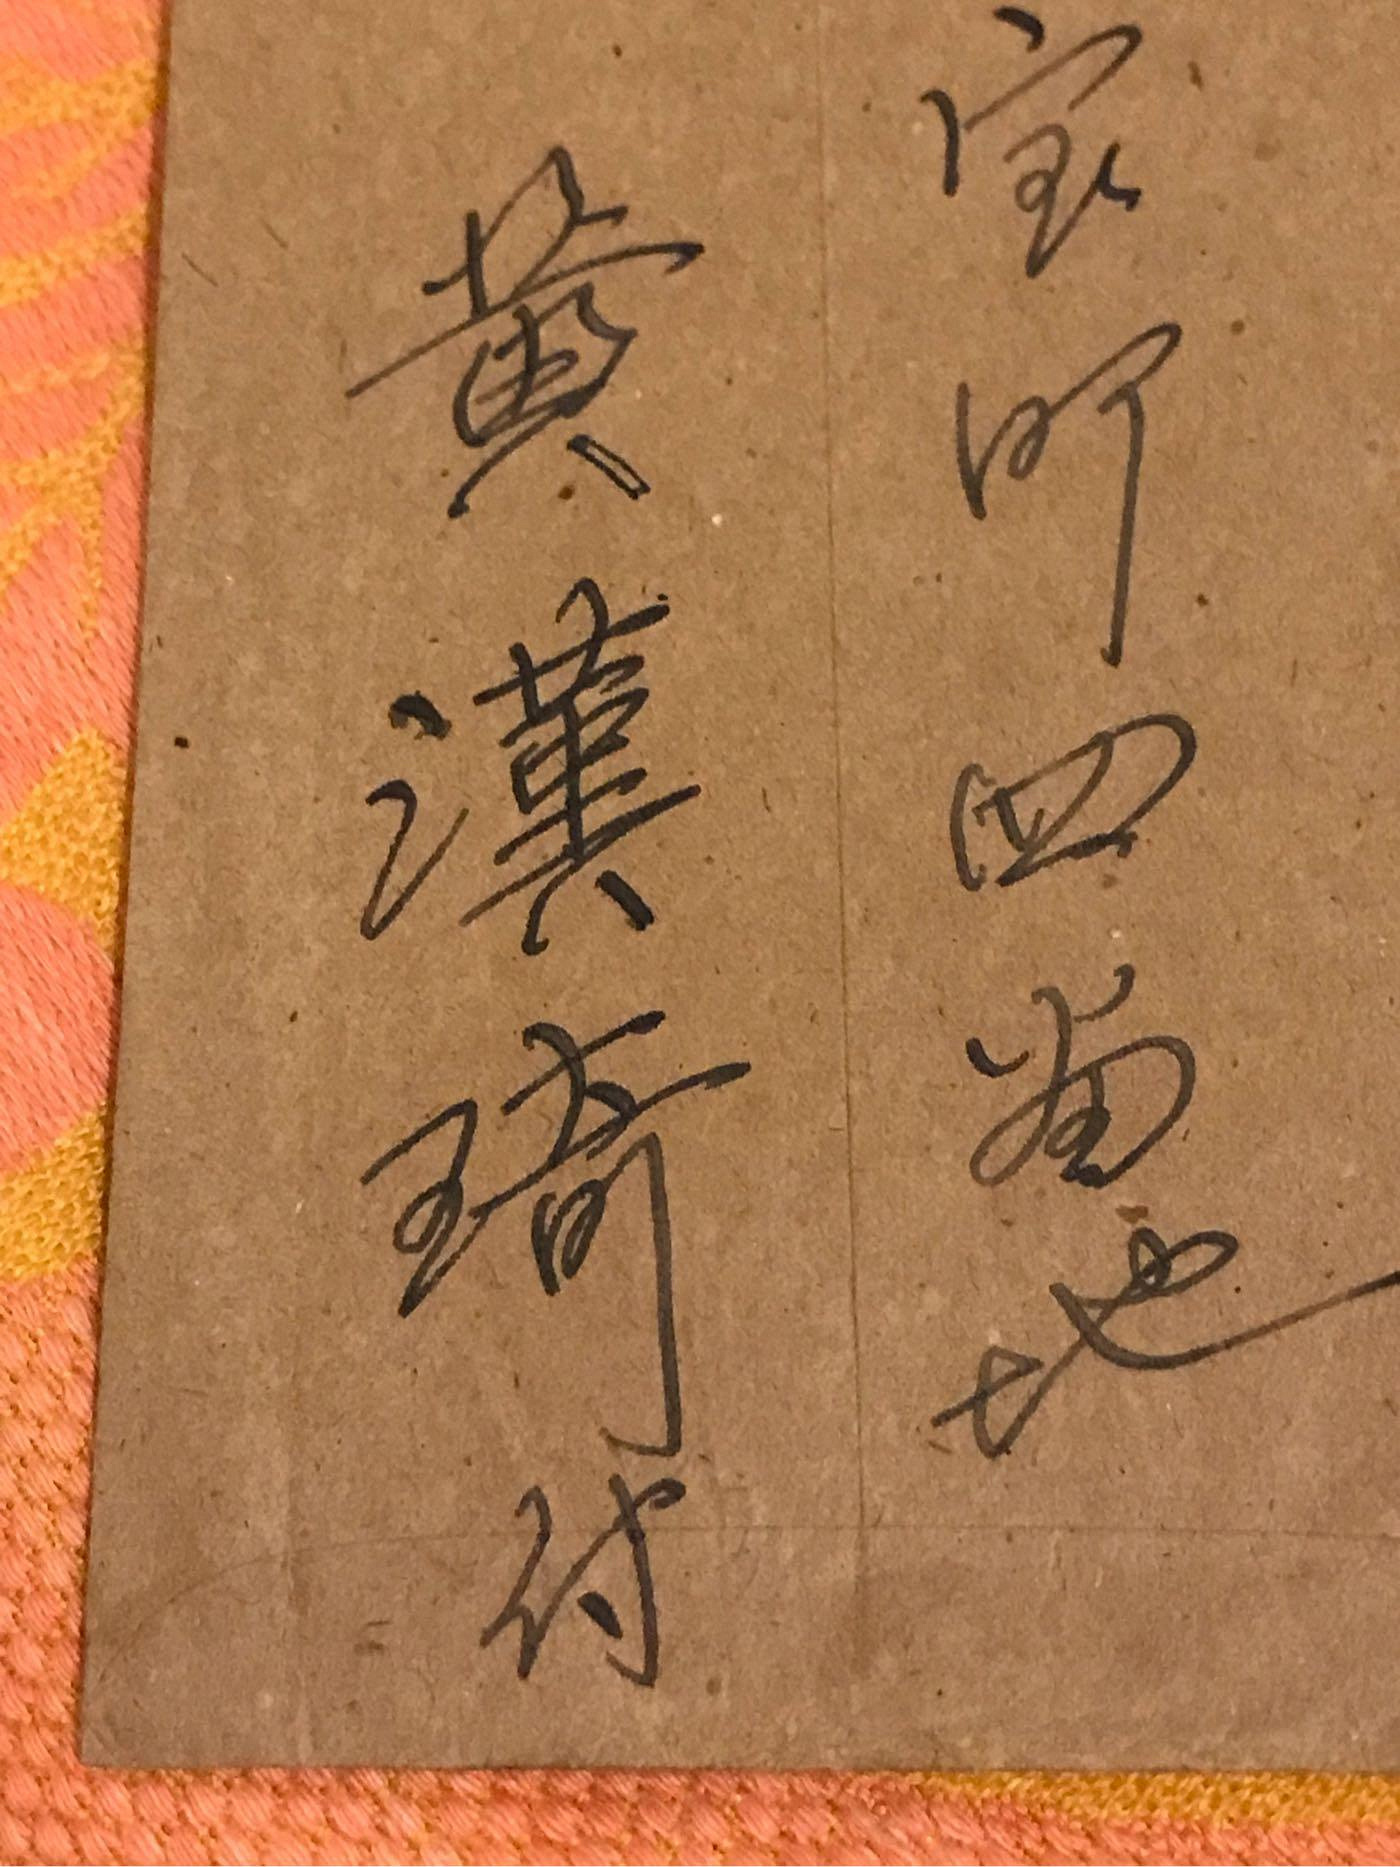 宝町四番地
黄漢琦付